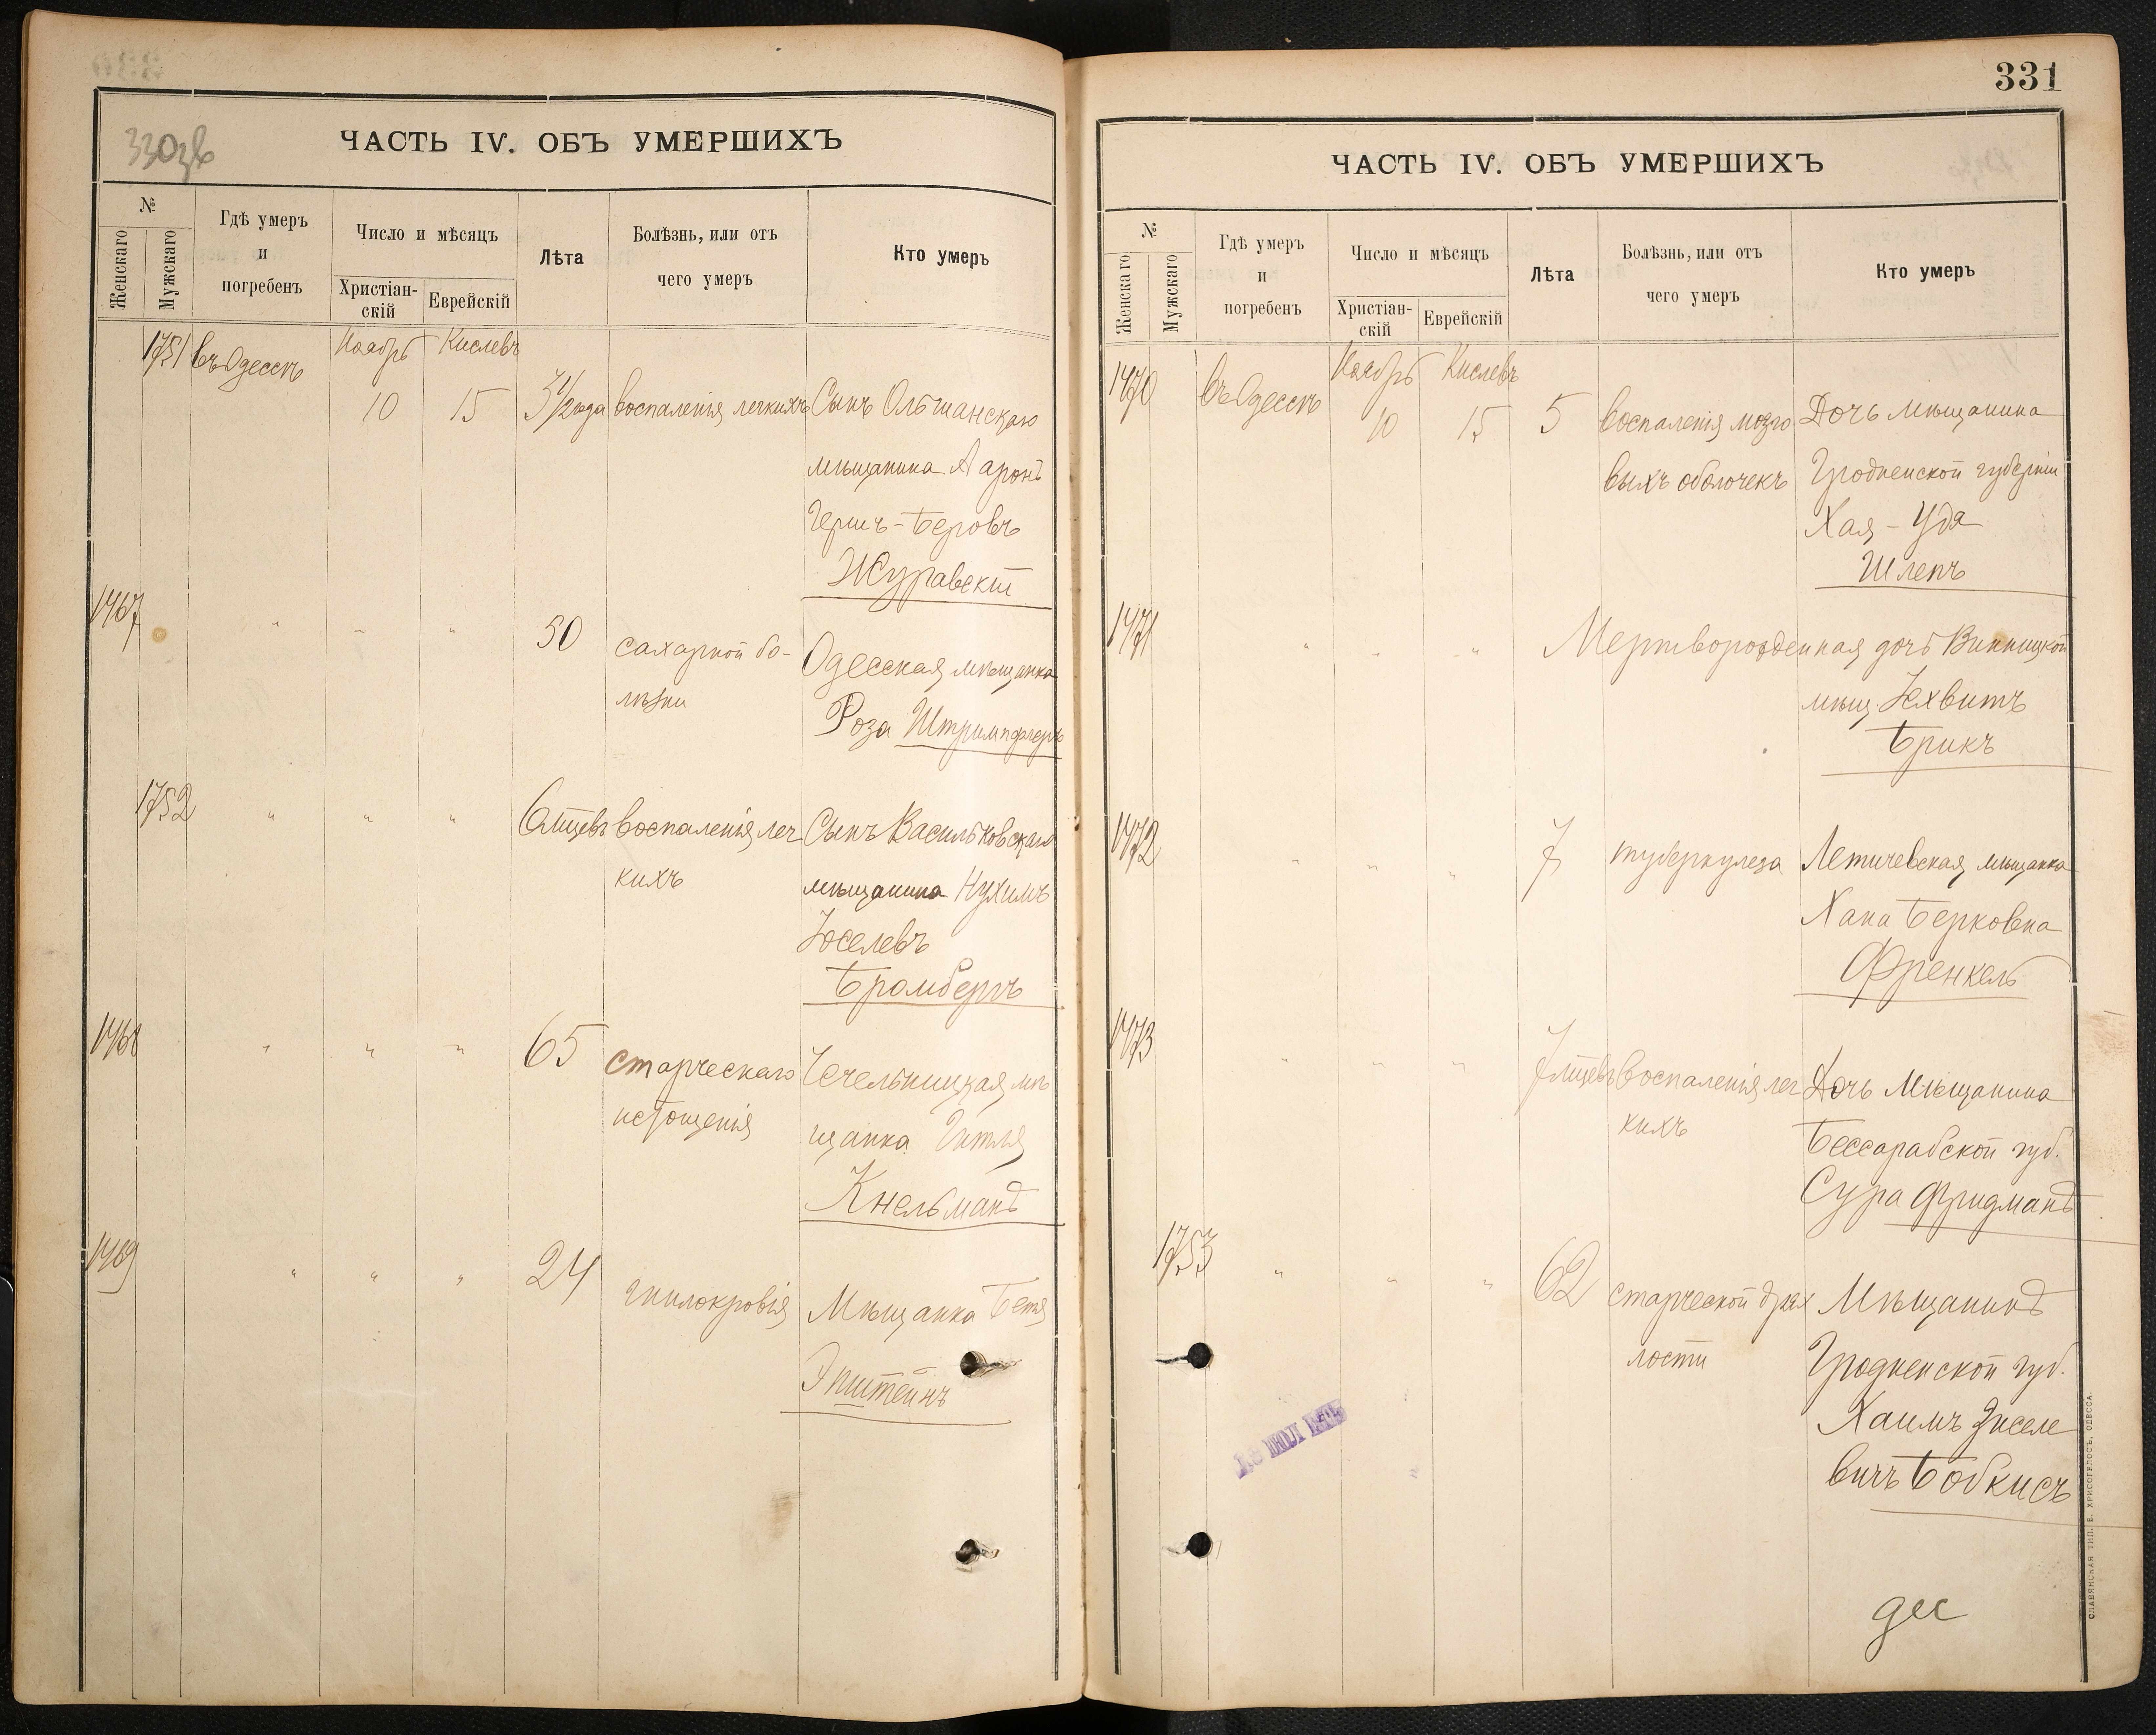 330зв
ЧАСТЬ IV. ОБЪ УМЕРШИХЪ
№
Женскаго
Мужскаго
Гдѣ умеръ
и
погребенъ
Число и мѣсяцъ
Христіан-
скій
Еврейскій
Лѣта
Болѣзнь, или отъ
чего умеръ
Кто умеръ
1751 въ Одессѣ Ноябрь Кислевъ
10 15 3 1/2 года воспаленія легкихъ Сынъ Ольшанскаго
мѣщанина Ааронъ
Гершъ-Беровъ
Журавскій
1467 " " " 50 сахарной бо- Одесская мѣщанка
лѣзни Роза Штримпфлеръ
1752 " " " 6 мцевъ воспаленія лег Сынъ Васильковскаго
кихъ мѣщанина Нухимъ
Іоселевъ
Бромбергъ
1468 " " " 65 старческаго Чечельницкая мѣ
истощенія щанка Гитля
Кнельманъ
1469 " " " 24 гнилокровія Мѣщанка Бетя
Эпштейнъ
331
ЧАСТЬ IV. ОБЪ УМЕРШИХЪ
№
Женскаго
Мужскаго
Гдѣ умеръ
и
погребенъ
Число и мѣсяцъ
Христіан-
скій
Еврейскій
Лѣта
Болѣзнь, или отъ
чего умеръ
Кто умеръ
1470 въ Одессѣ Ноябрь Кислевъ
10 15 5 воспаленія мозго Дочь мѣщанина
выхъ оболочекъ Гродненской губерніи
Хая-Уда
Шлепъ
1471 " " " Мертворожденная дочь Винницкой
мѣщ. Іохвитъ
Брикъ
1472 " " " 7 туберкулеза Летичевская мѣщанка
Хана Берковна
Френкель
1473 " " " 7 мцевъ воспаленія лег Дочь Мѣщанина
кихъ Бессарабской губ.
Сура Фридманъ
1753 " " " 62 старческой дрях Мѣщанинъ
лости Гродненской губ.
Хаимъ Зиселе
вичъ Бобкисъ
дес
СЛАВЯНСКАЯ ТИП. Е. ХРИСОГЕЛОСЪ, ОДЕССА.